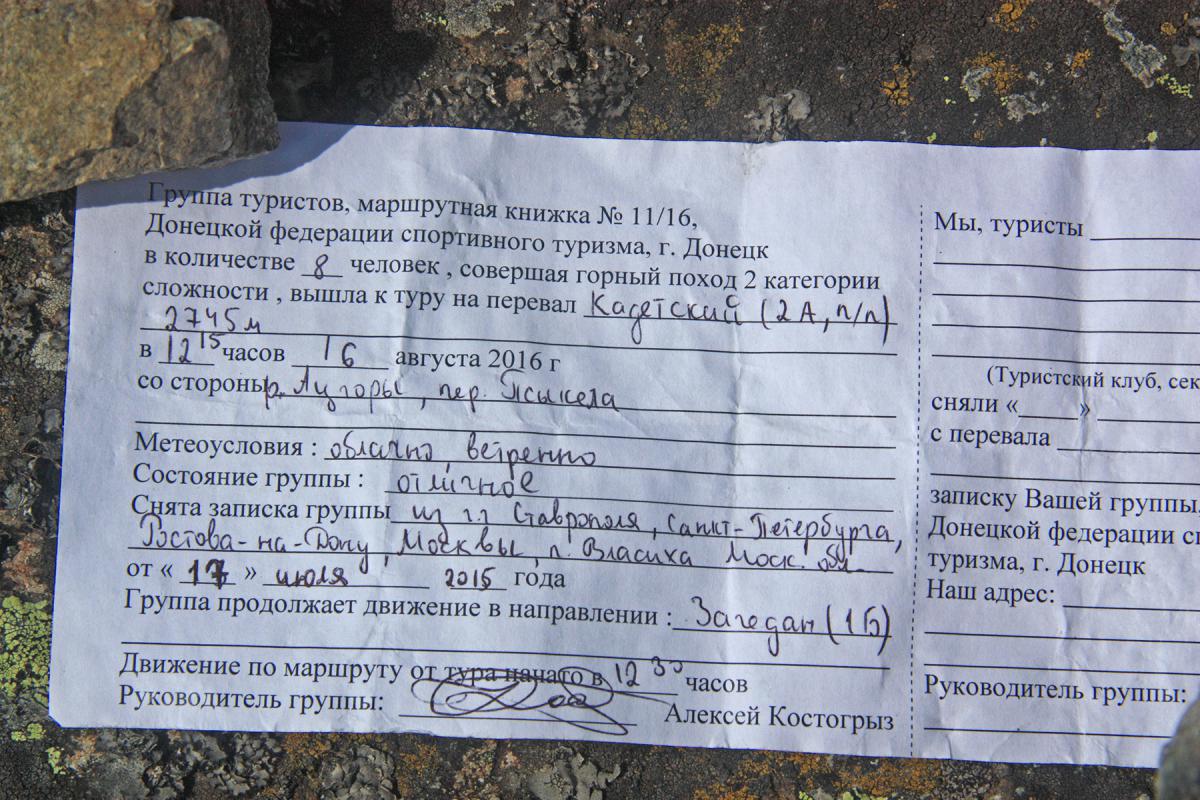 Группа туристов, маршрутная книжка № 11/16,
Донецкой федерации спортивного туризма, г. Донецк
в количестве 8 человек , совершая горный поход 2 категории
сложности , вышла к туру на перевал Кадетский (2А, п/п)
2745м
в 12 15 часов 16 августа 2016 г
со стороны р. Лугоры, пер. Псыкела
Метеоусловия : облачно, ветренно
Состояние группы : отличное
Снята записка группы из г.г Ставрополя, Санкт-Петербурга,
Ростова-на-Дону, Москвы, п. Власиха Моск. обл.
от « 17 » июля 2015 года
Группа продолжает движение в направлении : Загедан (1Б)
Движение по маршруту от тура начато в 12 30 часов
Руководитель группы: Алексей Костогрыз
Мы, туристы
(Туристский клуб, сек
сняли « »
с перевала
записку Вашей группы,
Донецкой федерации сп
туризма, г. Донецк
Наш адрес:
Руководитель группы: